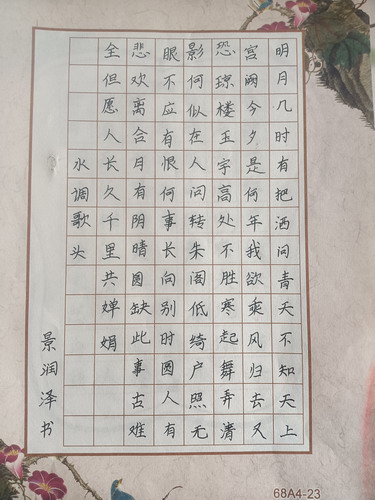 明月几时有把酒问青天不知天上
宫阙今夕是何年我欲乘风归去又
恐琼楼玉宇高处不胜寒起舞弄清
影何似在人间转朱阁低绮户照无
眼不应有恨何事长向别时圆人有
悲欢离合月有阴晴圆缺此事古难
全但愿人长久千里共婵娟
水调歌头
景润泽书
68A4-23